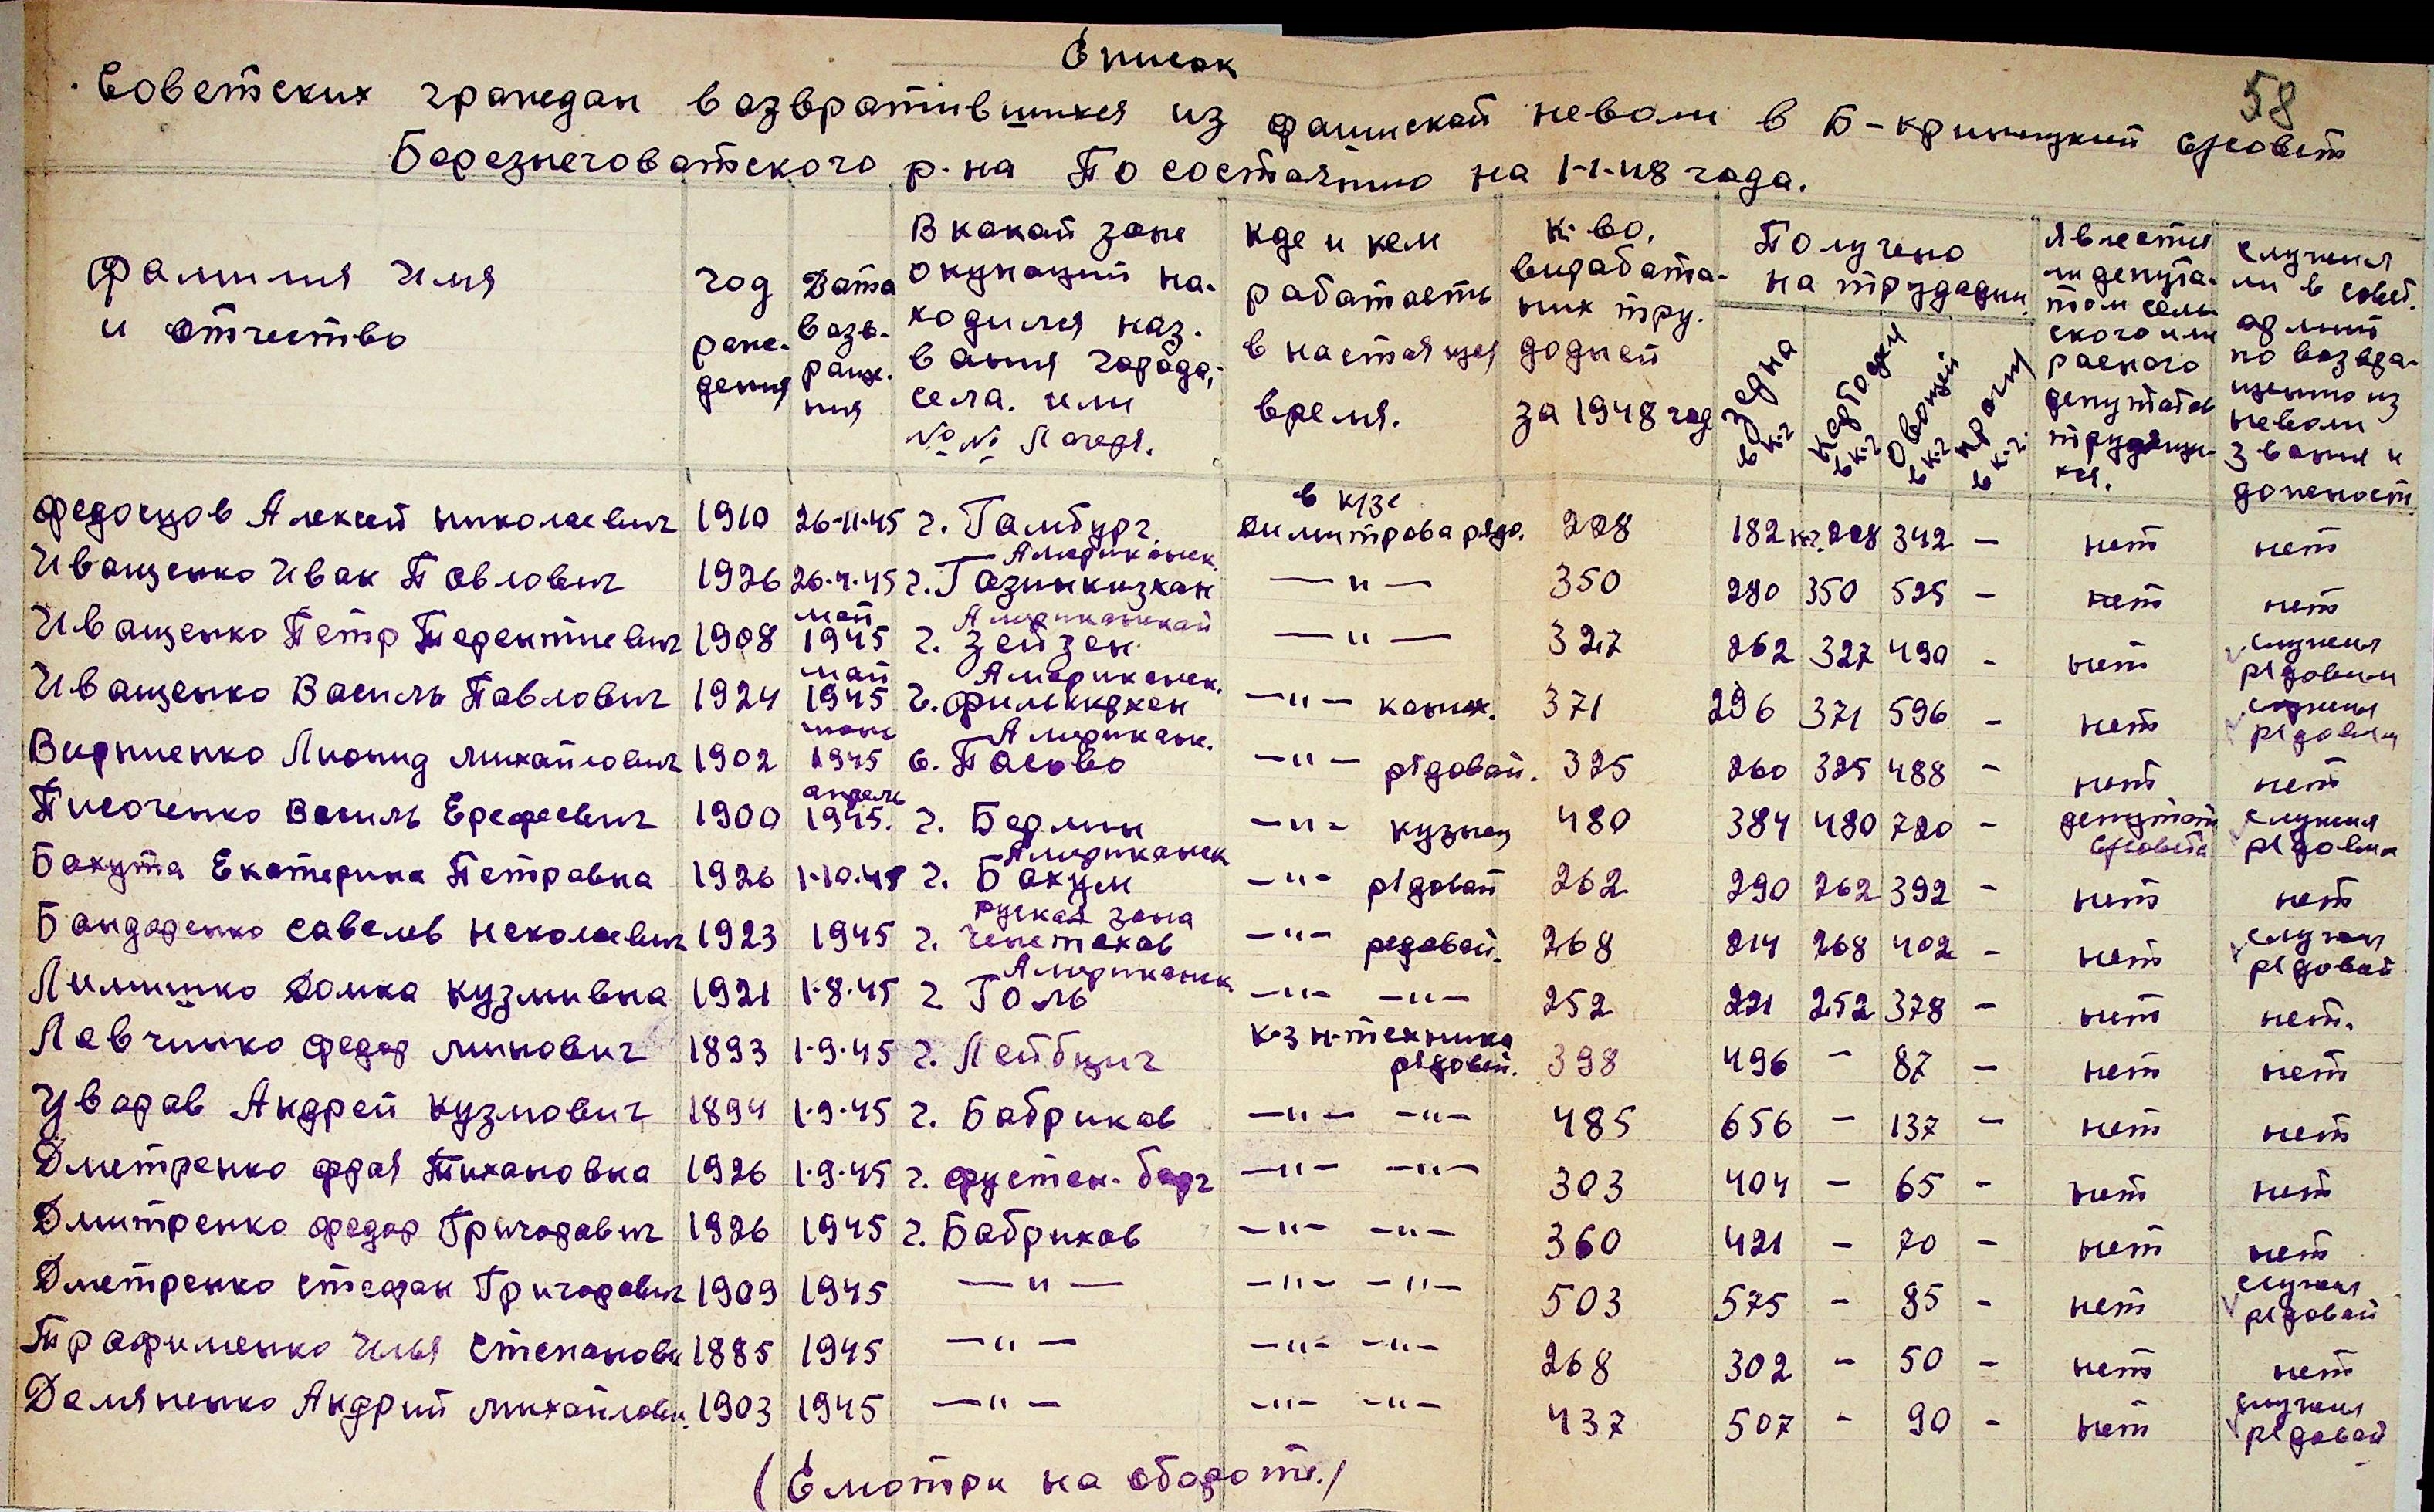 Список
58
Советских граждан возвратившихся из фашиской неволи в Б-криницкий с/совет
Березнеговатского р-на По состоянию на 1-1-48 года.
Фамилия Имя и отчество
год рожедения
Дата возвращения
В какой зоне окупации находился названия города, села. или №№ Лагеря.
кде и кем работаеть в настоящея время.
к-во. вырабатаних трудодней за 1948 год
Получено на трудодни
зерна в к-г
картошки в к-г
Овощей в к-г
прочих в к-г.
является ли депутатом сельского или райского депутатов трудящихся.
служил ли в совет. армии по возвращению из неволи звания и должност
Федосцов Алексей николаевич 1910 26-11-45 г. Гамбург. в к/зе Димитрова рядо. 228 182 кг. 228 342 — нет нет
Иващенко Иван Павлович 1926 26-4-45 Американск. г. Газинкизхан —"— 350 280 350 525 — нет нет
Иващенко Петр Терентиевич 1908 май 1945 Американской г. Зейзен —"— 327 262 327 490 - нет служил рядовим
Иващенко Василь Павлович 1924 май 1945 Американск. г. —"— конюх. 371 296 371 596 - нет служил рядовим
Вирниенко Лионид михайлович 1902 1945 Американ. с. Пасово —"— рядовой. 325 260 325 488 - нет нет
Писоченко Василь Ерефеевич 1900 апрель 1945. г. Берлин —"— кузнец 480 384 480 720 - депутат с/совета служил рядовим
Бакута Екатерина Петравна 1926 1-10-45 Американск г. Бохум —"— рядовой 262 290 262 392 - нет нет
Бондоренко савелев неколаевич 1923 1945 руская зона г. Ченстохов —"— редовой. 268 214 268 402 - нет служил рядовой
Лимишко Домка кузмивна 1921 1-8-45 Американск гГоль —"— —"— 252 221 252 378 - нет нет.
Левчинко Федор минович 1893 1-9-45 г. Лейбциг к-з н-техника рядовой. 398 496 - 87 - нет нет
Уваров Андрей кузмович 1894 1-9-45 г. Бобриков —"— —"— 485 656 - 137 - нет нет
Дметренко фрая Тихановна 1926 1-9-45 г. фустен-берг —"— —"— 303 404 - 65 - нет нет
Дмитренко федор Григорович 1926 1945 г. Бобриков —"— —"— 360 421 - 70 - нет нет
Дметренко стефан Григорович 1909 1945 —"— —"— —"— 503 575 - 85 - нет служил рядовой
Трофименко Илья степанови 1885 1945 —"— —"— —"— 268 302 - 50 - нет нет
Демяненко Андрий михайлови. 1903 1945 —"— —"— —"— 437 507 - 90 - нет служил рядовой
(Смотри на обороте.)